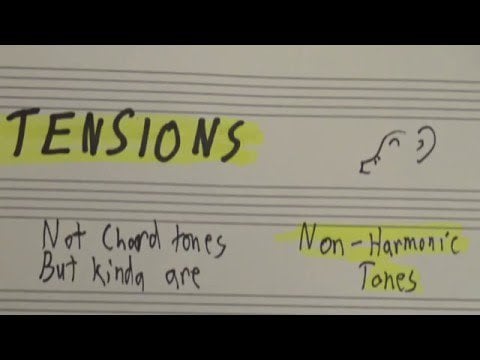 TENSIONS
Not Chord tones
But kinda are
Non-Harmonic
Tones